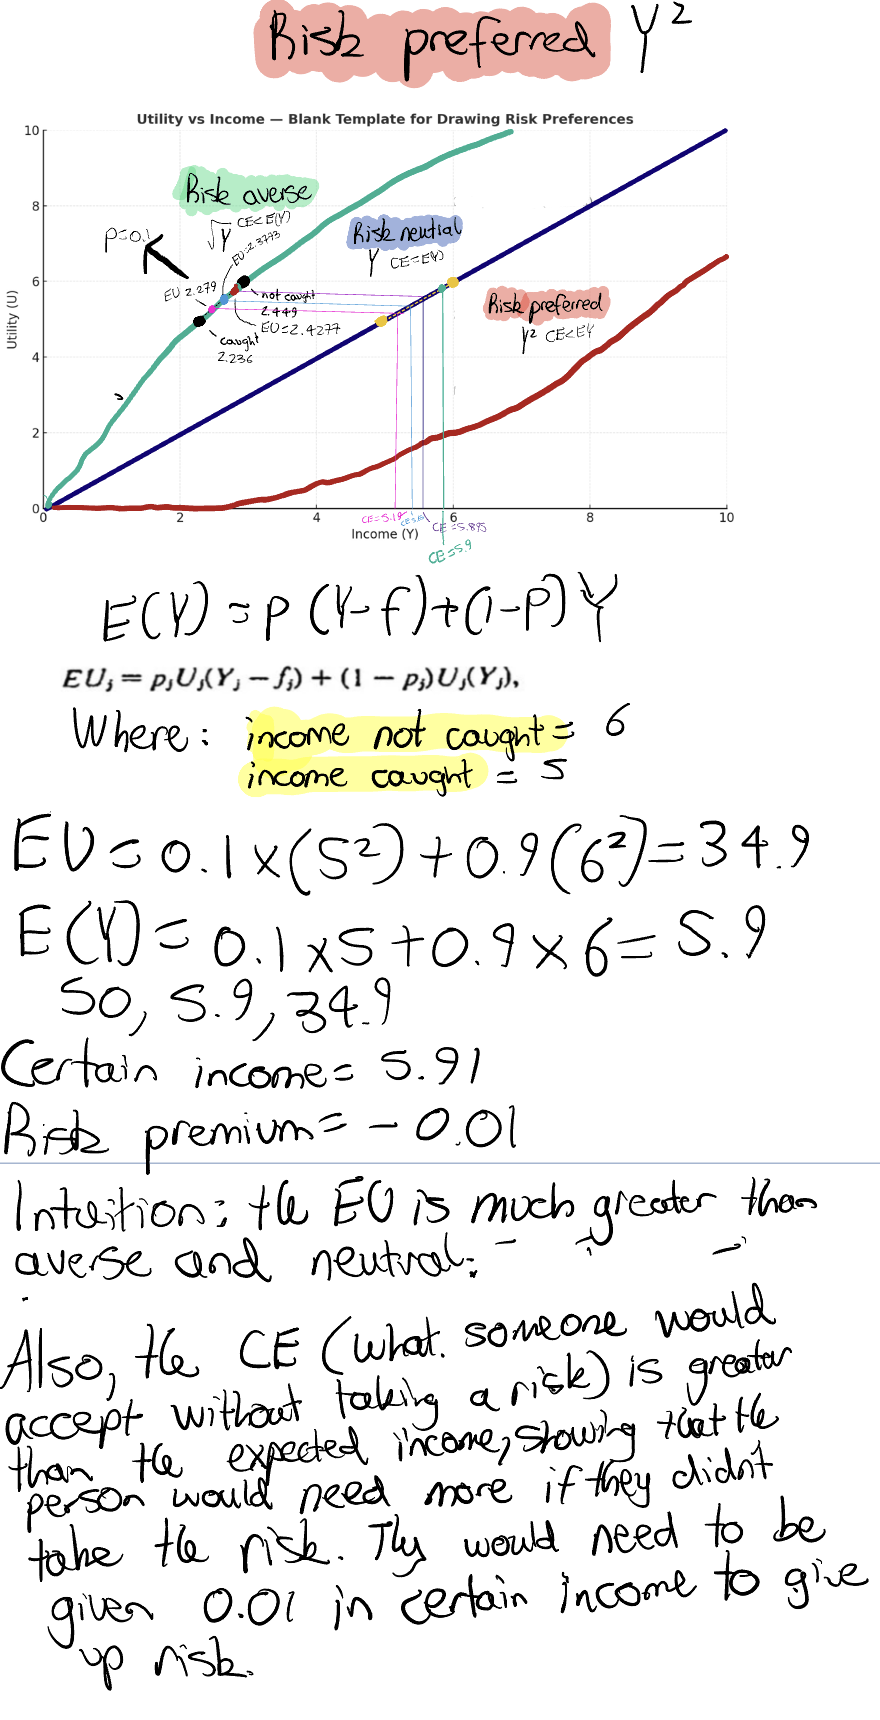 Risk preferred Y²
Utility vs Income — Blank Template for Drawing Risk Preferences
10
8
6
4
2
0
Utility (U)
Risk averse
√Y CE<E(Y)
P=0.1
EU=2.3773
EU 2.279
not caught
2.449
EU=2.4277
caught
2.236
Risk neutral
Y CE=E(Y)
Risk preferred
Y² CE<EY
0 2 4 6 8 10
Income (Y)
CE=5.19
CE=5.895
CE=5.9
E(Y) = P (Y-f)+(1-P)Y
EUⱼ = pⱼUⱼ(Yⱼ − fⱼ) + (1 − pⱼ)Uⱼ(Yⱼ),
Where: income not caught = 6
income caught = 5
EU = 0.1×(5²)+0.9(6²)=34.9
E(Y)= 0.1×5+0.9×6=5.9
50, 5.9, 34.9
Certain income= 5.91
Risk premium= -0.01
Intuition: the EU is much greater than
averse and neutral.
Also, the CE (what. someone would
accept without taking a risk) is greater
than the expected income, showing that the
person would need more if they didn't
take the risk. They would need to be
given 0.01 in certain income to give
up risk.